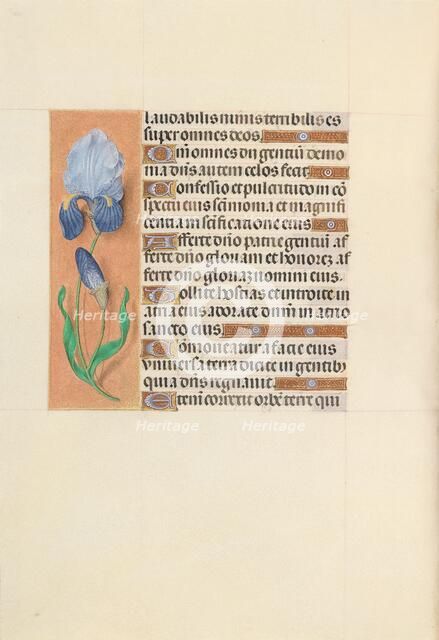 laudabilis nimis terribilis es
super omnes deos.
Qm̄ omnes dn̄ gentiū demo
nia dn̄s autem celos fecit.
Confessio et pulcritudo in cō
spectu eius sc̄imonia et magnifi
centia in scificatione eius
Afferte dn̄o patrie gentiū af
ferte dn̄o gloriam et honorez af
ferte dn̄o gloriaz nomini eius.
Tollite hostias et introite in
atria eius adorate dnm̄ in atrio
sancto eius.
Cōmoueatur a facie eius
vniuersa terra dicite in gentib9
quia dn̄s regnauit.
Etem̄ correxit orbē terre qui
Heritage Heritage
Heritage Heritage
Heritage Heritage